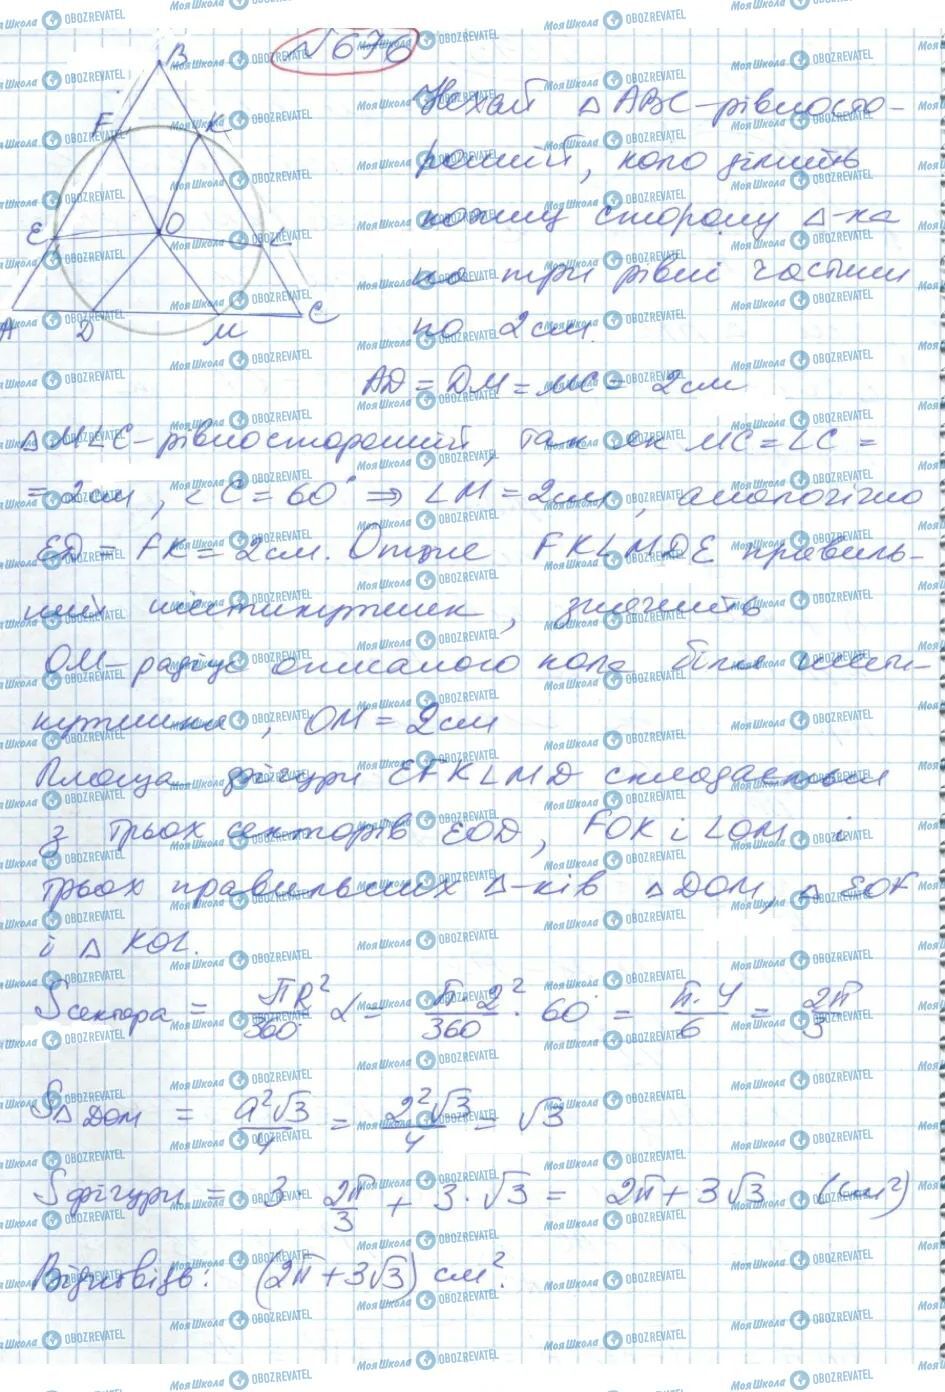 № 676
B
F
K
E
O
L
A
D
M
C
Нехай △ ABC - рівносто-
ронній, коло ділить
кожну сторону △-ка
на три рівні частини
по 2 см.
AD = DM = MC = 2 см
△ MLC - рівносторонній, так як MC = LC =
= 2 см, ∠C = 60° ⇒ LM = 2 см, аналогічно
ED = FK = 2 см. Отже FKLMDE правиль-
ний шестикутник, значить
OM - радіус описаного кола біля шести-
кутника, OM = 2 см
Площа фігури EFKLMD складається
з трьох секторів EOD, FOK і LOM і
трьох правильних △-ків △ DOM, △ EOF
і △ KOL.
Sсектора = πR²/360° α = π·2²/360 · 60° = π·4/6 = 2π/3
S△DOM = a²√3/4 = 2²√3/4 = √3
Sфігури = 3 · 2π/3 + 3 · √3 = 2π + 3√3 (см²)
Відповідь: (2π + 3√3) см².
МояШкола OBOZREVATEL